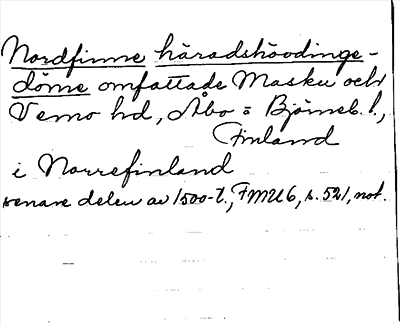 Nordfinne häradshövdinge-
döme omfattade Masku och
Vemo hd, Åbo = Björneb. l.,
Finland
i Norrefinland
senare delen av 1500-t., FMU 6, s. 521, not.